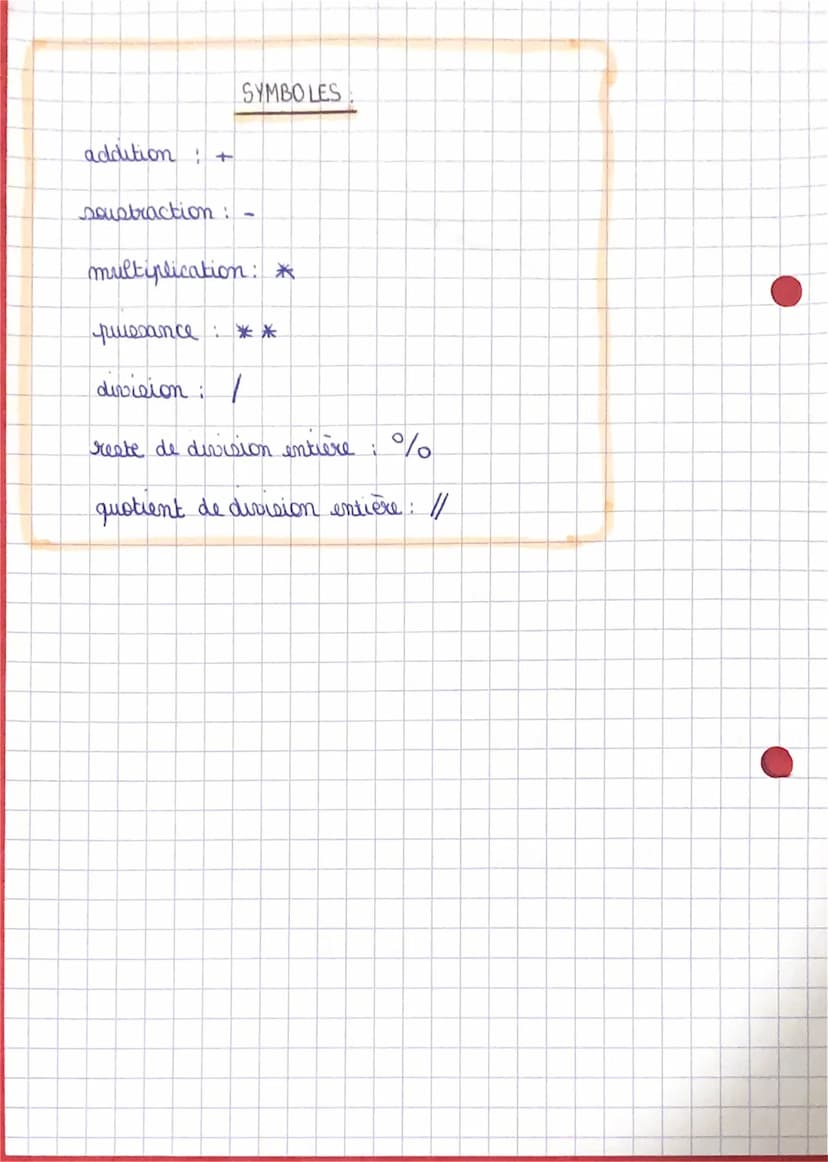 SYMBOLES :
addition : +
soustraction : -
multiplication : *
puissance : **
division : /
reste de division entière : %
quotient de division entière : //